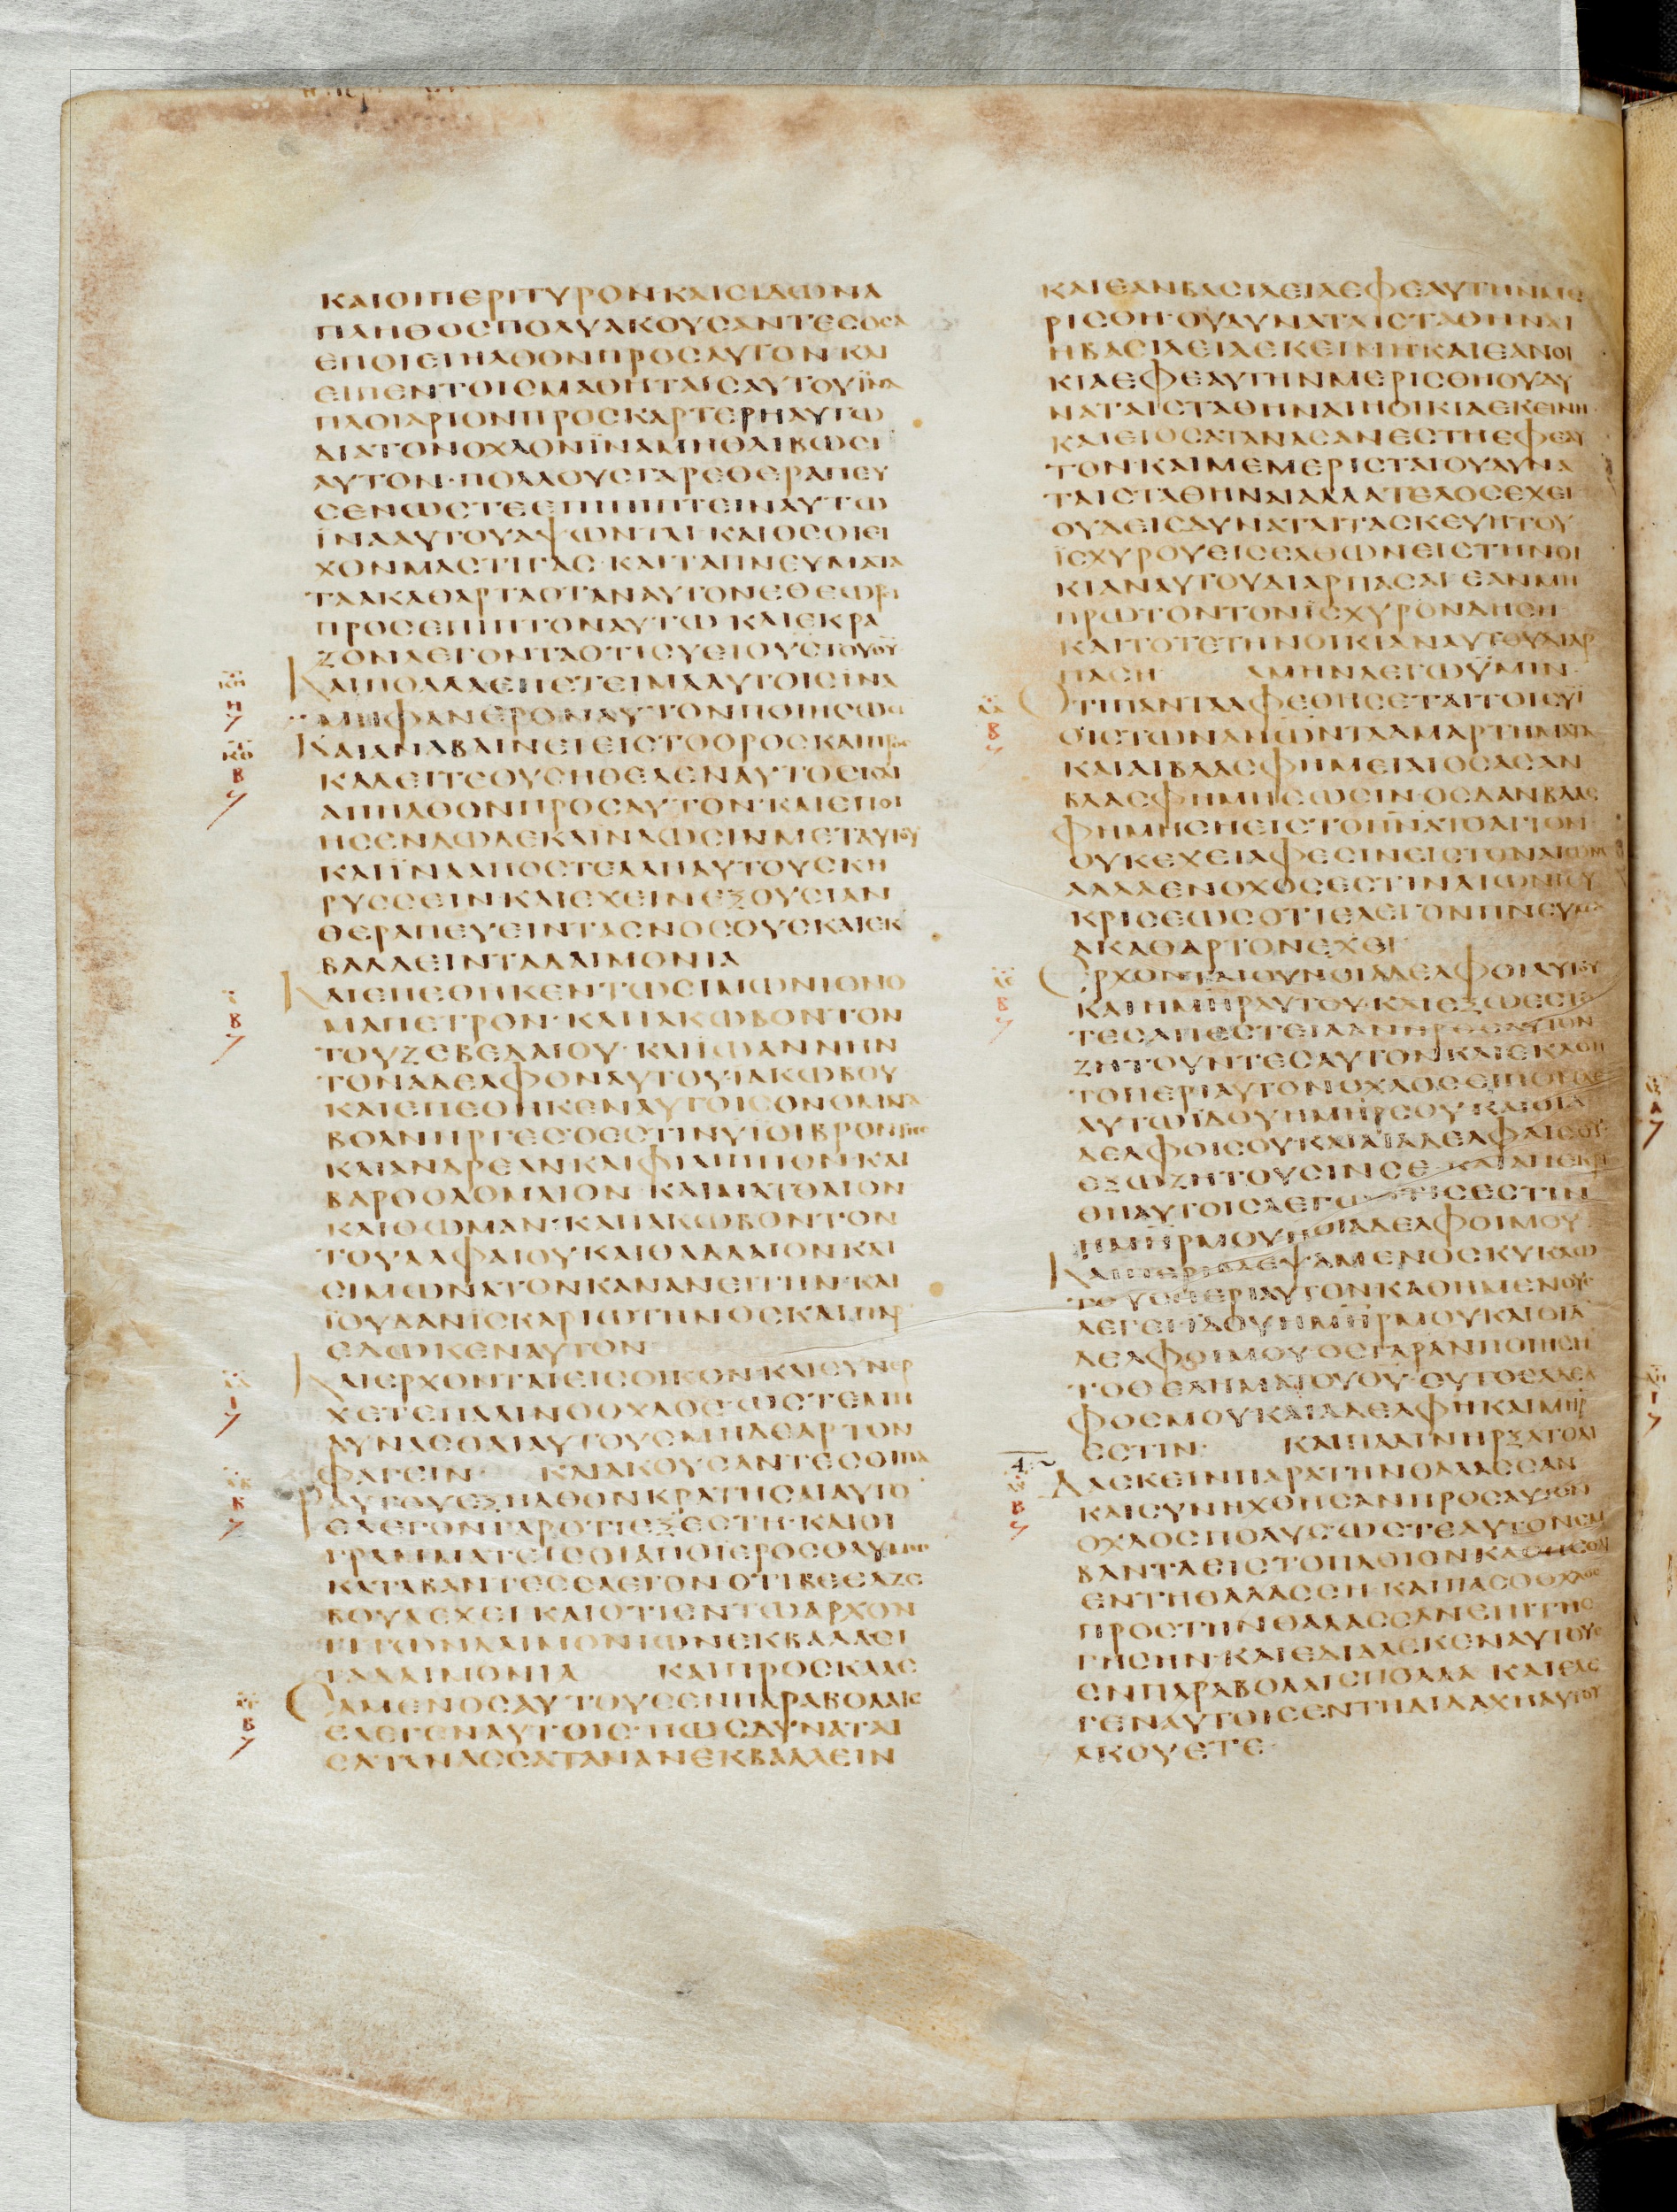 ΚΑΙΟΙΠΕΡΙΤΥΡΟΝΚΑΙϹΙΔΩΝΑ
ΠΛΗΘΟϹΠΟΛΥΑΚΟΥϹΑΝΤΕϹΟϹΑ
ΕΠΟΙΕΙΗΛΘΟΝΠΡΟϹΑΥΤΟΝ·ΚΑΙ
ΕΙΠΕΝΤΟΙϹΜΑΘΗΤΑΙϹΑΥΤΟΥΪΝΑ
ΠΛΟΙΑΡΙΟΝΠΡΟϹΚΑΡΤΕΡΗΑΥΤΩ
ΔΙΑΤΟΝΟΧΛΟΝΪΝΑΜΗΘΛΙΒΩϹΙ
ΑΥΤΟΝ·ΠΟΛΛΟΥϹΓΑΡΕΘΕΡΑΠΕΥ
ϹΕΝΩϹΤΕΕΠΙΠΙΠΤΕΙΝΑΥΤΩ
ΪΝΑΑΥΤΟΥΑΨΩΝΤΑΙ·ΚΑΙΟϹΟΙΕΙ
ΧΟΝΜΑϹΤΙΓΑϹ·ΚΑΙΤΑΠΝΕΥΜΑΤΑ
ΤΑΑΚΑΘΑΡΤΑΟΤΑΝΑΥΤΟΝΕΘΕΩΡΙ
ΠΡΟϹΕΠΙΠΤΟΝΑΥΤΩ ΚΑΙΕΚΡΑ
ΖΟΝΛΕΓΟΝΤΑΟΤΙϹΥΕΙΟΥϹΤΟΥΘΥ
ΚΗ Η
ΚΑΙΠΟΛΛΑΕΠΕΤΕΙΜΑΑΥΤΟΙϹΙΝΑ
ΜΗΦΑΝΕΡΟΝΑΥΤΟΝΠΟΙΗϹΩϹΙ
ΚΘ Β
ΚΑΙΑΝΑΒΑΙΝΕΙΕΙϹΤΟΟΡΟϹΚΑΙΠΡΟϹ
ΚΑΛΕΙΤΕΟΥϹΗΘΕΛΕΝΑΥΤΟϹΚΑΙ
ΑΠΗΛΘΟΝΠΡΟϹΑΥΤΟΝ·ΚΑΙΕΠΟΙ
ΗϹΕΝΔΩΔΕΚΑΪΝΑΩϹΙΝΜΕΤΑΥΤΟΥ
ΚΑΙΪΝΑΑΠΟϹΤΕΛΛΗΑΥΤΟΥϹΚΗ
ΡΥϹϹΕΙΝ·ΚΑΙΕΧΕΙΝΕΞΟΥϹΙΑΝ
ΘΕΡΑΠΕΥΕΙΝΤΑϹΝΟϹΟΥϹΚΑΙΕΚ
ΒΑΛΛΕΙΝΤΑΔΑΙΜΟΝΙΑ
Λ Β
ΚΑΙΕΠΕΘΗΚΕΝΤΩϹΙΜΩΝΙΟΝΟ
ΜΑΠΕΤΡΟΝ·ΚΑΙΙΑΚΩΒΟΝΤΟΝ
ΤΟΥΖΕΒΕΔΑΙΟΥ·ΚΑΙΪΩΑΝΝΗΝ
ΤΟΝΑΔΕΛΦΟΝΑΥΤΟΥΪΑΚΩΒΟΥ
ΚΑΙΕΠΕΘΗΚΕΝΑΥΤΟΙϹΟΝΟΜΑΤΑ
ΒΟΑΝΗΡΓΕϹ·ΟΕϹΤΙΝΥΙΟΙΒΡΟΝΤΗϹ
ΚΑΙΑΝΔΡΕΑΝ·ΚΑΙΦΙΛΙΠΠΟΝ·ΚΑΙ
ΒΑΡΘΟΛΟΜΑΙΟΝ·ΚΑΙΜΑΤΘΑΙΟΝ
ΚΑΙΘΩΜΑΝ·ΚΑΙΙΑΚΩΒΟΝΤΟΝ
ΤΟΥΑΛΦΑΙΟΥ·ΚΑΙΘΑΔΔΑΙΟΝ·ΚΑΙ
ϹΙΜΩΝΑΤΟΝΚΑΝΑΝΕΙΤΗΝ·ΚΑΙ
ΪΟΥΔΑΝΪϹΚΑΡΙΩΤΗΝΟϹΚΑΙΠΑΡ
ΕΔΩΚΕΝΑΥΤΟΝ
ΛΑ Ι
ΚΑΙΕΡΧΟΝΤΑΙΕΙϹΟΙΚΟΝ·ΚΑΙϹΥΝΕΡ
ΧΕΤΕΠΑΛΙΝΟΟΧΛΟϹ·ΩϹΤΕΜΗ
ΔΥΝΑϹΘΑΙΑΥΤΟΥϹΜΗΔΕΑΡΤΟΝ
ΦΑΓΕΙΝ· ΚΑΙΑΚΟΥϹΑΝΤΕϹΟΙΠΑ
ΛΒ Β
ΡΑΥΤΟΥΕΞΗΛΘΟΝΚΡΑΤΗϹΑΙΑΥΤΟ
ΕΛΕΓΟΝΓΑΡΟΤΙΕΞΕϹΤΗ·ΚΑΙΟΙ
ΓΡΑΜΜΑΤΕΙϹΟΙΑΠΟΪΕΡΟϹΟΛΥΜΩΝ
ΚΑΤΑΒΑΝΤΕϹΕΛΕΓΟΝΟΤΙΒΕΕΛΖΕ
ΒΟΥΛΕΧΕΙ·ΚΑΙΟΤΙΕΝΤΩΑΡΧΟΝ
ΤΙΤΩΝΔΑΙΜΟΝΙΩΝΕΚΒΑΛΛΕΙ
ΤΑΔΑΙΜΟΝΙΑ ΚΑΙΠΡΟϹΚΑΛΕ
ΛΓ Β
ϹΑΜΕΝΟϹΑΥΤΟΥϹΕΝΠΑΡΑΒΟΛΑΙϹ
ΕΛΕΓΕΝΑΥΤΟΙϹ·ΠΩϹΔΥΝΑΤΑΙ
ϹΑΤΑΝΑϹϹΑΤΑΝΑΝΕΚΒΑΛΛΕΙΝ
ΚΑΙΕΑΝΒΑϹΙΛΕΙΑΕΦΕΑΥΤΗΝΜΕ
ΡΙϹΘΗ·ΟΥΔΥΝΑΤΑΙϹΤΑΘΗΝΑΙ
ΗΒΑϹΙΛΕΙΑΕΚΕΙΝΗ·ΚΑΙΕΑΝΟΙ
ΚΙΑΕΦΕΑΥΤΗΝΜΕΡΙϹΘΗΟΥΔΥ
ΝΑΤΑΙϹΤΑΘΗΝΑΙΗΟΙΚΙΑΕΚΕΙΝΗ·
ΚΑΙΕΙΟϹΑΤΑΝΑϹΑΝΕϹΤΗΕΦΕΑΥ
ΤΟΝ·ΚΑΙΜΕΜΕΡΙϹΤΑΙΟΥΔΥΝΑ
ΤΑΙϹΤΑΘΗΝΑΙΑΛΛΑΤΕΛΟϹΕΧΕΙ
ΟΥΔΕΙϹΔΥΝΑΤΑΙΤΑϹΚΕΥΗΤΟΥ
ΪϹΧΥΡΟΥΕΙϹΕΛΘΩΝΕΙϹΤΗΝΟΙ
ΚΙΑΝΑΥΤΟΥΔΙΑΡΠΑϹΑΙ·ΕΑΝΜΗ
ΠΡΩΤΟΝΤΟΝΪϹΧΥΡΟΝΔΗϹΗ
ΚΑΙΤΟΤΕΤΗΝΟΙΚΙΑΝΑΥΤΟΥΔΙΑΡ
ΠΑϹΗ ΑΜΗΝΛΕΓΩΫΜΙΝ
ΛΔ Β
ΟΤΙΠΑΝΤΑΑΦΕΘΗϹΕΤΑΙΤΟΙϹΥΙ
ΟΙϹΤΩΝΑΝΩΝΤΑΑΜΑΡΤΗΜΑΤΑ
ΚΑΙΑΙΒΛΑϹΦΗΜΕΙΑΙΟϹΑϹΑΝ
ΒΛΑϹΦΗΜΗϹΩϹΙΝ·ΟϹΔΑΝΒΛΑϹ
ΦΗΜΗϹΗΕΙϹΤΟΠΝΑΤΟΑΓΙΟΝ
ΟΥΚΕΧΕΙΑΦΕϹΙΝΕΙϹΤΟΝΑΙΩΝΑ
ΑΛΛΑΕΝΟΧΟϹΕϹΤΙΝΑΙΩΝΙΟΥ
ΚΡΙϹΕΩϹΟΤΙΕΛΕΓΟΝΠΝΕΥΜΑ
ΑΚΑΘΑΡΤΟΝΕΧΕΙ
ΛΕ Β
ΕΡΧΟΝΤΑΙΟΥΝΟΙΑΔΕΛΦΟΙΑΥΤΟΥ
ΚΑΙΗΜΗΡΑΥΤΟΥ·ΚΑΙΕΞΩΕϹΤΩ
ΤΕϹΑΠΕϹΤΕΙΛΑΝΠΡΟϹΑΥΤΟΝ
ΖΗΤΟΥΝΤΕϹΑΥΤΟΝ·ΚΑΙΕΚΑΘΗ
ΤΟΠΕΡΙΑΥΤΟΝΟΧΛΟϹ·ΕΙΠΟΝΔΕ
ΑΥΤΩΪΔΟΥΗΜΗΡϹΟΥ·ΚΑΙΟΙΑ
ΔΕΛΦΟΙϹΟΥΚΑΙΑΙΑΔΕΛΦΑΙϹΟΥ
ΕΞΩΖΗΤΟΥϹΙΝϹΕ·ΚΑΙΑΠΕΚΡΙ
ΘΗΑΥΤΟΙϹΛΕΓΩ ΤΙϹΕϹΤΙΝ
ΗΜΗΡΜΟΥΗΟΙΑΔΕΛΦΟΙΜΟΥ
ΚΑΙΠΕΡΙΒΛΕΨΑΜΕΝΟϹΚΥΚΛΩ
ΤΟΥϹΠΕΡΙΑΥΤΟΝΚΑΘΗΜΕΝΟΥϹ
ΛΕΓΕΙΪΔΟΥΗΜΗΡΜΟΥΚΑΙΟΙΑ
ΔΕΛΦΟΙΜΟΥ·ΟϹΓΑΡΑΝΠΟΙΗϹΗ
ΤΟΘΕΛΗΜΑΤΟΥΘΥ·ΟΥΤΟϹΑΔΕΛ
ΦΟϹΜΟΥΚΑΙΑΔΕΛΦΗΚΑΙΜΗΡ
ΕϹΤΙΝ· ΚΑΙΠΑΛΙΝΗΡΞΑΤΟΔΙ
ΛϚ Β
ΔΑϹΚΕΙΝΠΑΡΑΤΗΝΘΑΛΑϹϹΑΝ
ΚΑΙϹΥΝΗΧΘΗϹΑΝΠΡΟϹΑΥΤΟΝ
ΟΧΛΟϹΠΟΛΥϹ·ΩϹΤΕΑΥΤΟΝΕΜ
ΒΑΝΤΑΕΙϹΤΟΠΛΟΙΟΝΚΑΘΗϹΘΑΙ
ΕΝΤΗΘΑΛΑϹϹΗ·ΚΑΙΠΑϹΟΟΧΛΟϹ
ΠΡΟϹΤΗΝΘΑΛΑϹϹΑΝΕΠΙΤΗϹ
ΓΗϹΗΝ·ΚΑΙΕΔΙΔΑϹΚΕΝΑΥΤΟΥϹ
ΕΝΠΑΡΑΒΟΛΑΙϹΠΟΛΛΑ ΚΑΙΕΛΕ
ΓΕΝΑΥΤΟΙϹΕΝΤΗΔΙΔΑΧΗΑΥΤΟΥ
ΑΚΟΥΕΤΕ